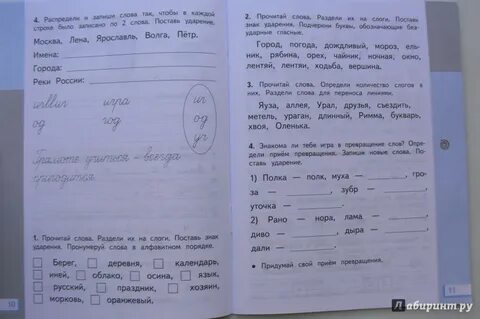 4. Распредели и запиши слова так, чтобы в каждой
строке было записано по 2 слова. Поставь ударение.
Москва, Лена, Ярославль, Волга, Пётр.
Имена:
Города:
Реки России:
игра иг
од год од
уг
Грамоте учиться – всегда
пригодится.
1. Прочитай слова. Раздели их на слоги. Поставь знак
ударения. Пронумеруй слова в алфавитном порядке.
Берег, деревня, календарь,
иней, облако, осина, язык,
русский, праздник, хозяин,
морковь, оранжевый.
10
2. Прочитай слова. Раздели их на слоги. Поставь
знак ударения. Подчеркни буквы, обозначающие без-
ударные гласные.
Город, погода, дождливый, мороз, ель-
ник, рябина, орех, чайник, ночная, окно,
лентяй, лентяи, ходьба, вершина.
3. Прочитай слова. Определи количество слогов в
них. Раздели слова для переноса линиями.
Яуза, аллея, Урал, друзья, съездить,
метель, ураган, длинный, Римма, букварь,
хвоя, Оленька.
4. Знакома ли тебе игра в превращение слов? Опре-
дели приём превращения. Запиши новые слова. По-
ставь ударение.
1) Полка — полк, муха — , гро-
за — , зубр — ,
уточка — .
2) Рано — нора, лама — ,
диво — , дыра — ,
дали — .
• Придумай свой приём превращения.
11
Лабиринт.ру